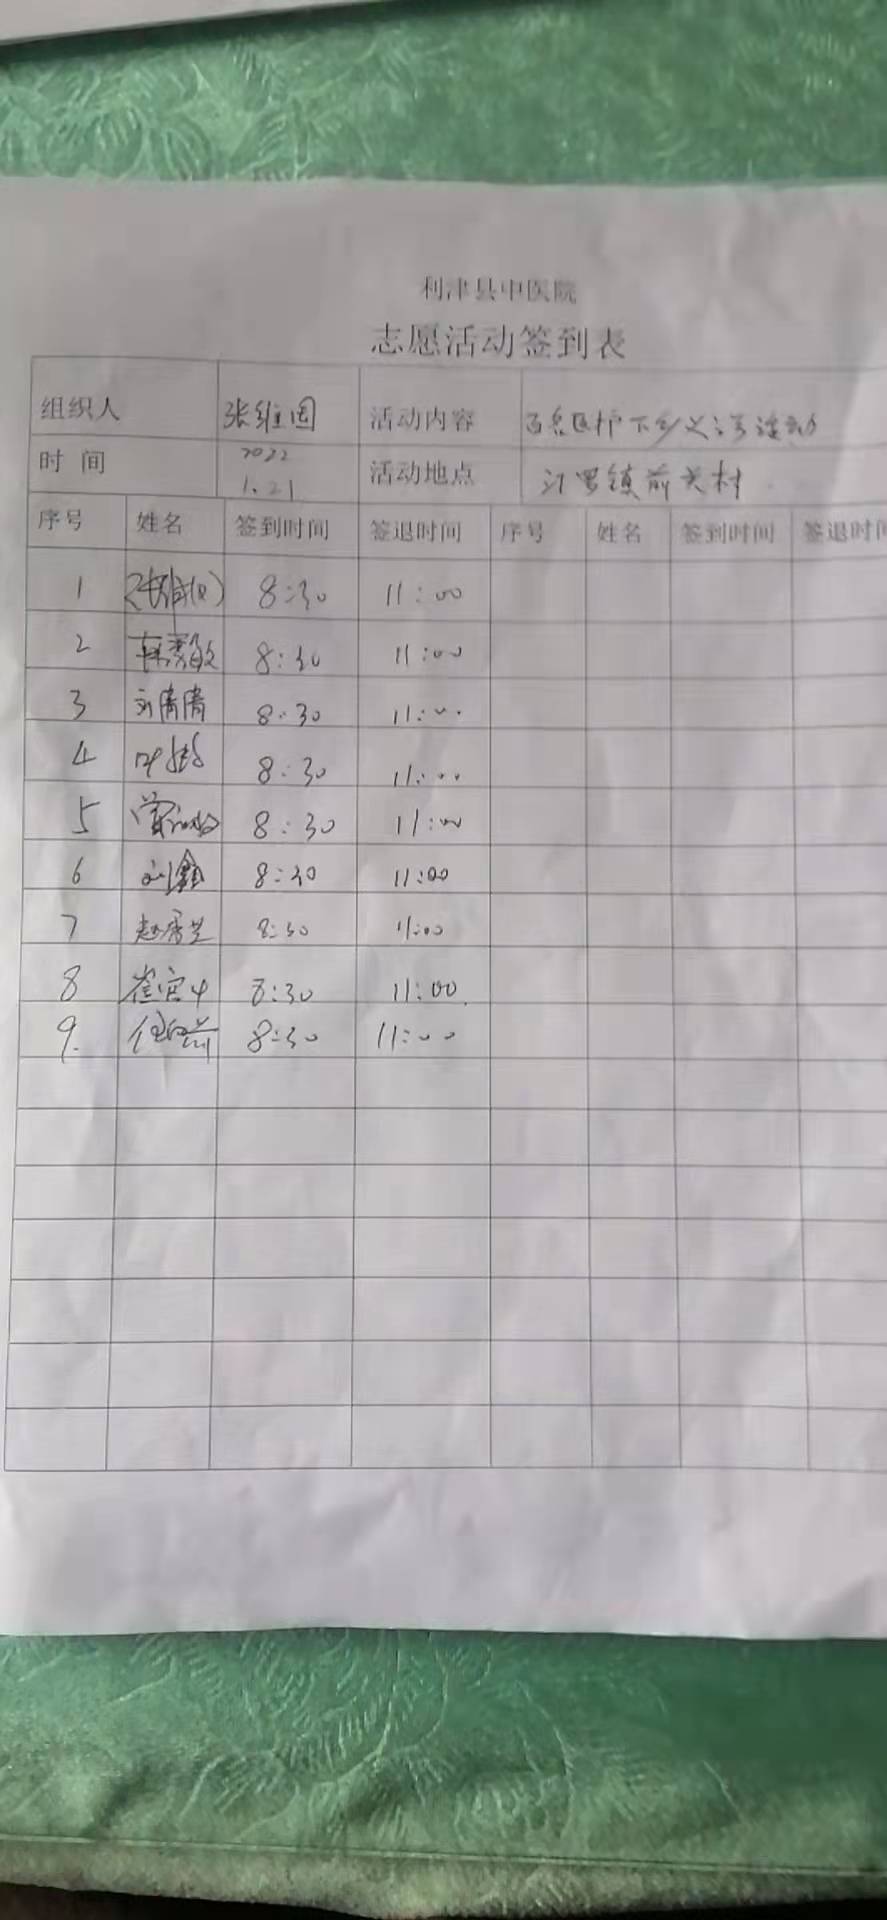 利津县中医院
志愿活动签到表
组织人 张维国 活动内容 百名医护下乡义诊活动
时 间 2022 1.21 活动地点 汀罗镇前关村
序号 姓名 签到时间 签退时间 序号 姓名 签到时间 签退时间
1 张维国 8:30 11:00
2 韩秀敏 8:30 11:00
3 刘倩倩 8:30 11:00
4 8:30 11:00
5 8:30 11:00
6 刘鑫 8:30 11:00
7 赵秀芝 8:30 11:00
8 8:30 11:00
9. 8:30 11:00